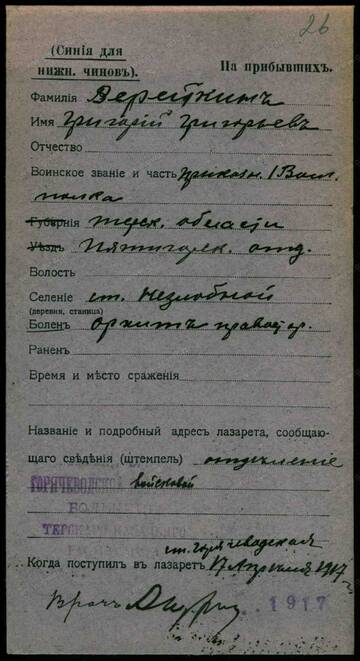 26
(Синія для
нижн. чиновъ).
На прибывшихъ.
Фамилія Веревкинъ
Имя Григорій Григорьевъ
Отчество
Воинское званіе и часть приказн. 1 Волг.
полка
Губернія терск. области
Уѣздъ Пятигорск. отд.
Волость
Селеніе ст. Незлобной
(деревня, станица)
Боленъ орхитъ правостор.
Раненъ
Время и мѣсто сраженія
Названіе и подробный адресъ лазарета, сообщаю-
щаго свѣдѣнія (штемпель) отдѣленіе
ГОРЯЧЕВОДСКОЙ войсковой
ст. Горячеводская
Когда поступилъ въ лазаретъ 17 Апрѣля 1917 г.
Врачъ
1917